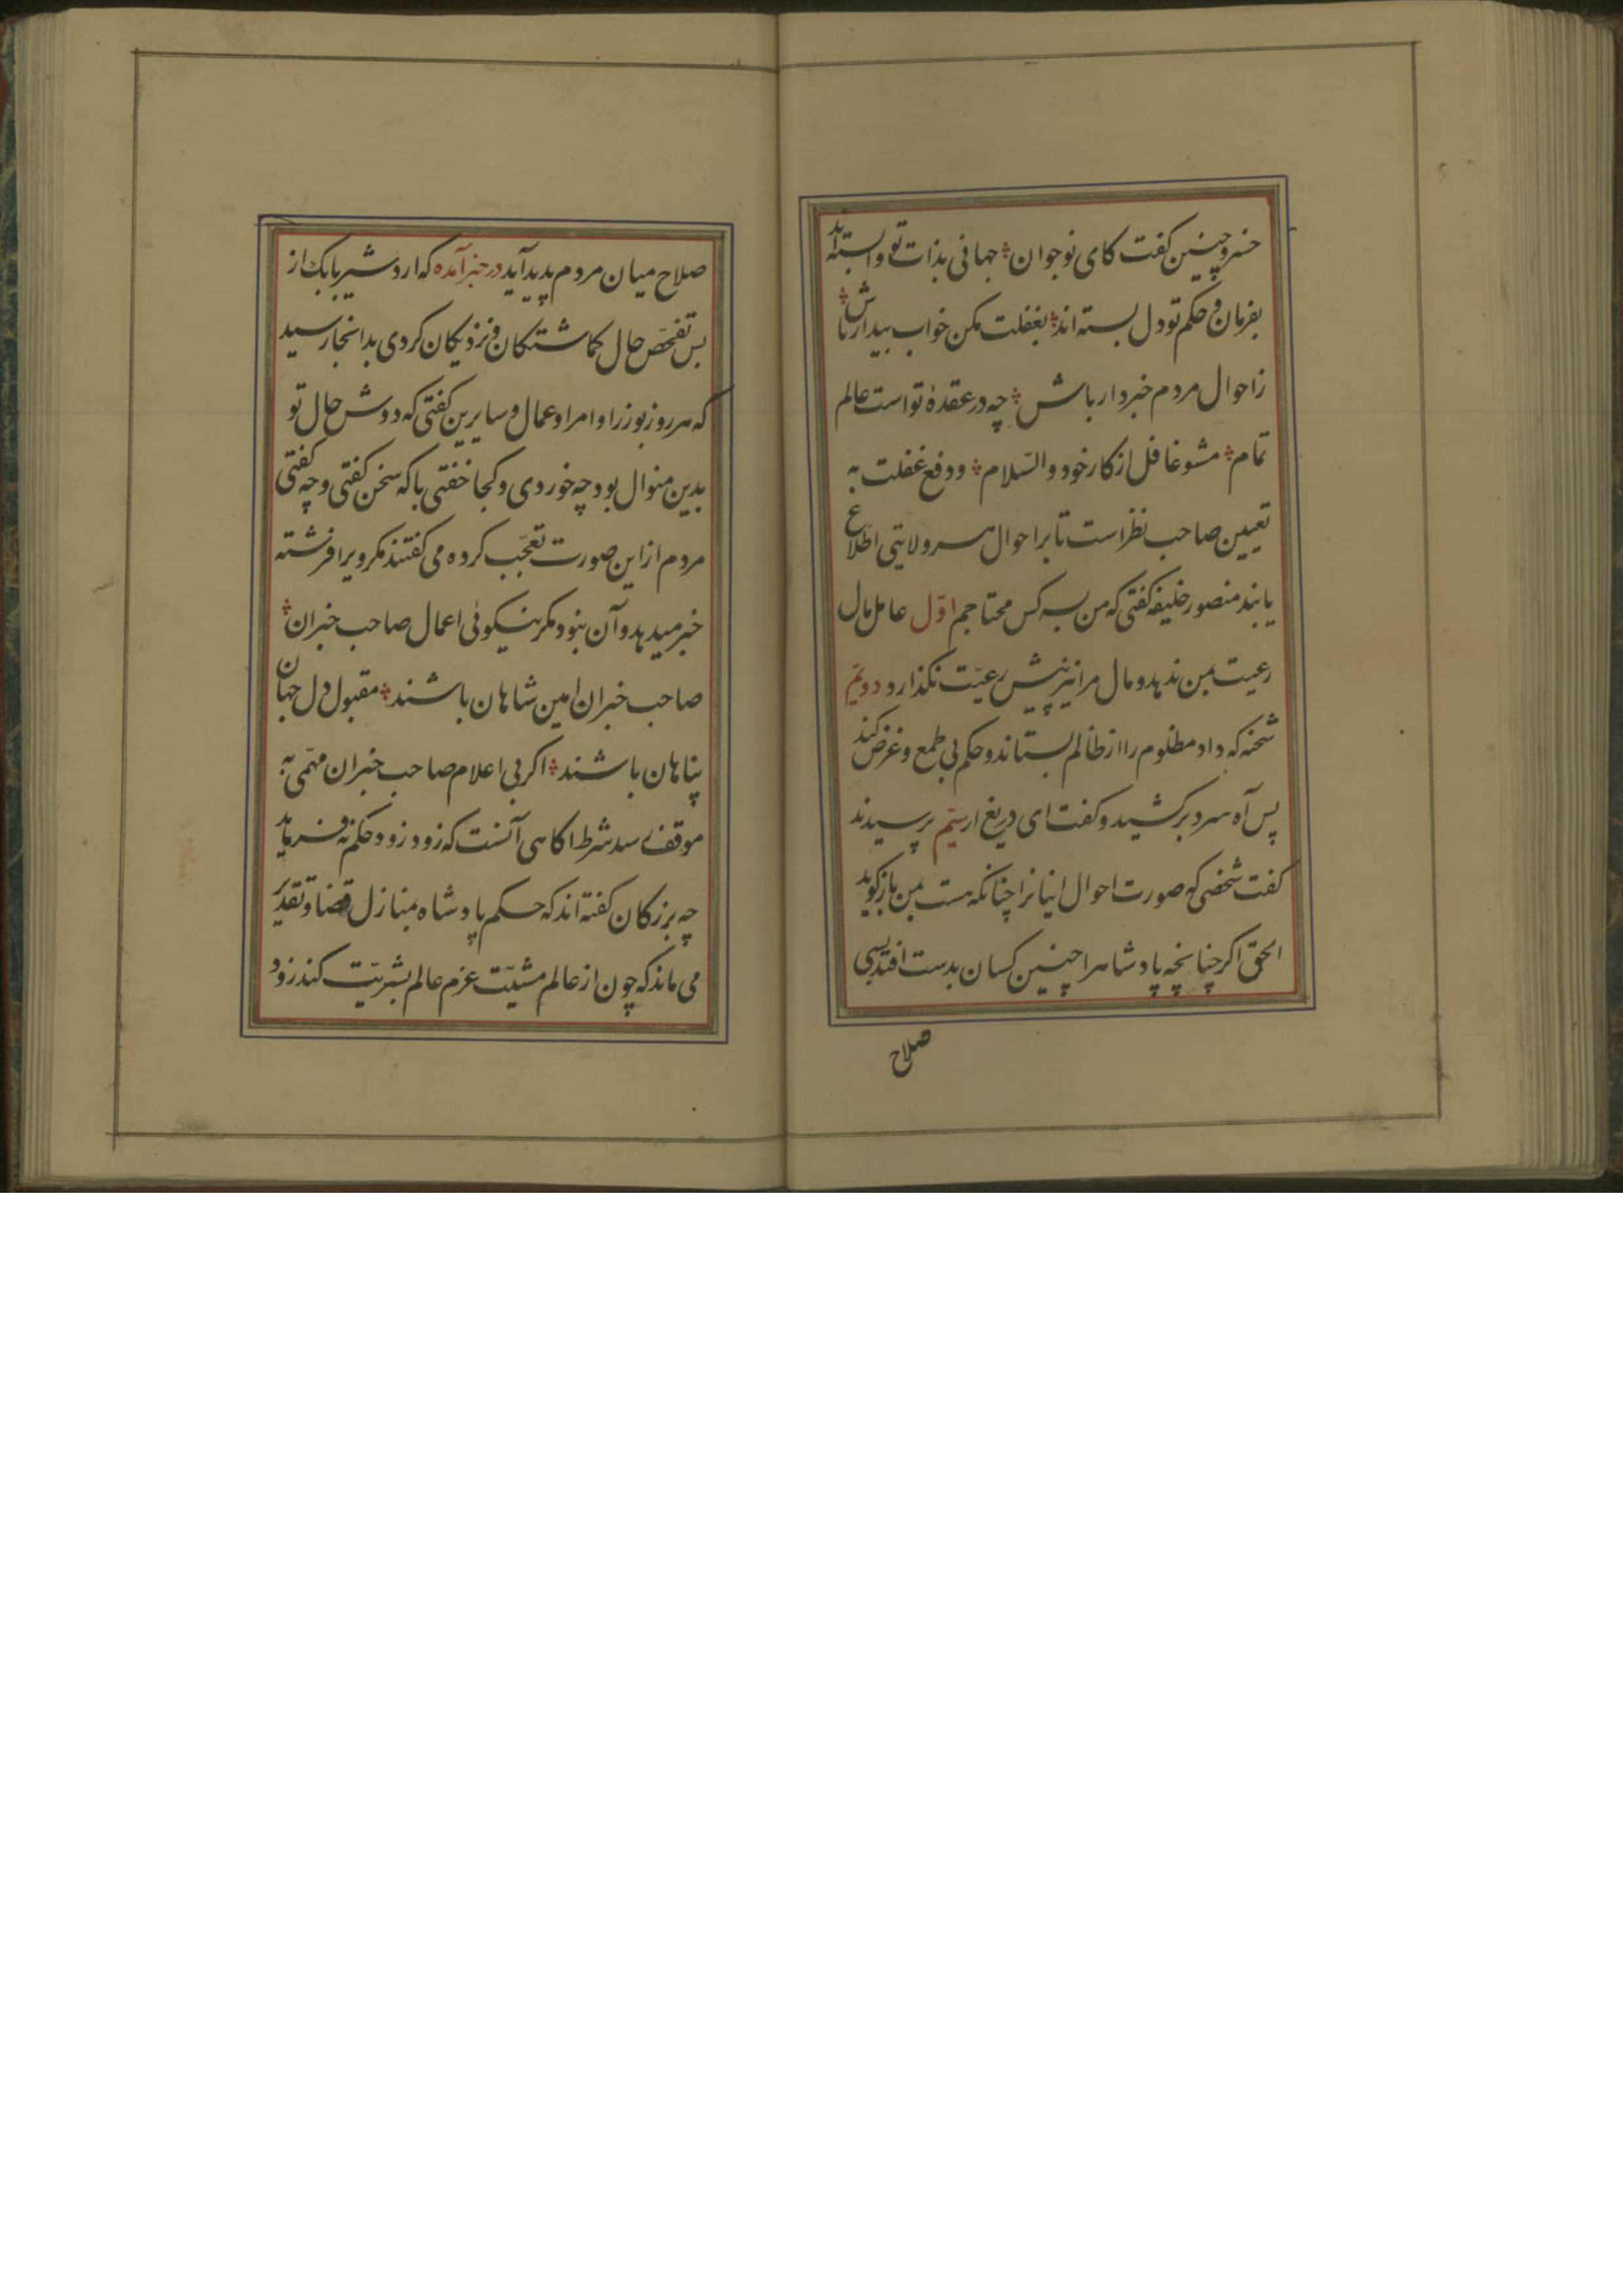 خسرو چنین کفت کای نوجوان جهانی بذات تو وابسته اند
بفرمان و حکم تو دل بسته اند بغفلت مکن خواب بیدار باش
ز احوال مردم خبردار باش چه در عقدهٔ تو است عالم
تمام مشو غافل از کار خود والسّلام و دفع غفلت به
تعیین صاحب نظر است تا بر احوال هر ولایتی اطّلاع
یابند منصور خلیفه کفتی که من بسه کس محتاجم اوّل عامل مال
رعیت بمن ندهد و مال مرا نیز پیش رعیّت نکذارد دویّم
شحنه که داد مظلوم را از ظالم بستاند و حکم بی طمع و غرض کند
پس آه سرد برکشید و کفت ای دریغ از سیّم پرسیدند
کفت شخصی که صورت احوال اینانرا چنانکه هست بمن باز کوید
الحق اکر چنانچه پادشاهرا چنین کسان بدست افتد بسی
صلاح
صلاح میان مردم پدید آید در خبر آمده که اردشیر بابک از
بس تفحّص حال کماشتکان و نزدیکان کردی بدانجا رسید
که هر روز بوزرا و امرا و عمال و سایرین کفتی که دوش حال تو
بدین منوال بود چه خوردی و کجا خفتی با که سخن کفتی و چه کفتی
مردم از این صورت تعجّب کرده می کفتند مکر ویرا فرشته
خبر میدهد و آن نبود مکر نیکوئی اعمال صاحب خبران
صاحب خبران امین شاهان باشند مقبول دل جهان
پناهان باشند اکر بی اعلام صاحب خبران مهمّی به
موقف رسد شرط اکاهی آنست که زود زود حکم نه فرماید
چه بزرکان کفته اند که حکم پادشاه بمنازل قضا و تقدیر
می ماند که چون از عالم مشیّت عزم عالم بشریّت کند زود